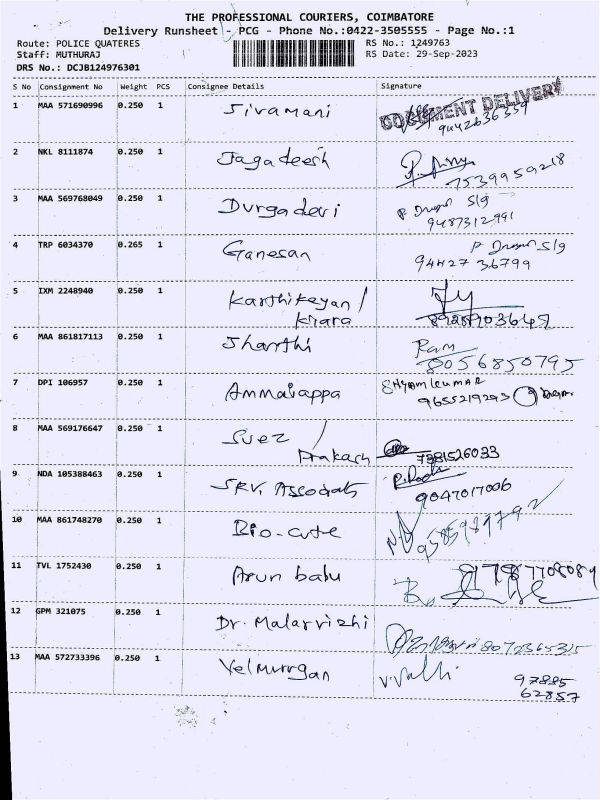 THE PROFESSIONAL COURIERS, COIMBATORE
Delivery Runsheet - PCG - Phone No.:0422-3505555 - Page No.:1
Route: POLICE QUATERES RS No.: 1249763
Staff: MUTHURAJ RS Date: 29-Sep-2023
DRS No.: DCJB124976301
S No Consignment No Weight PCS Consignee Details Signature
1 MAA 571690996 0.250 1 Sivamani DOCUMENT DELIVERY
9442636339
2 NKL 8111874 0.250 1 Jagadeesh
7539959218
3 MAA 569768049 0.250 1 Durgadevi
9487312991
4 TRP 6034370 0.265 1 Ganesan
94427 36799
5 IXM 2248940 0.250 1 Karthikeyan /
Kiara
6 MAA 861817113 0.250 1 Sharthi Ram
8056850795
7 DPI 106957 0.250 1 Ammaiappa Shyamkumar
9655219293
8 MAA 569176647 0.250 1 Suez /
Prakash 7381526033
9 NDA 105388463 0.250 1 SRV. Associats
9047017006
10 MAA 861748270 0.250 1 Bio-cute
11 TVL 1752430 0.250 1 Arun babu
12 GPM 321075 0.250 1 Dr. Malarvizhi
8072365325
13 MAA 572733396 0.250 1 Velmurugan V. Valli
97885
62857